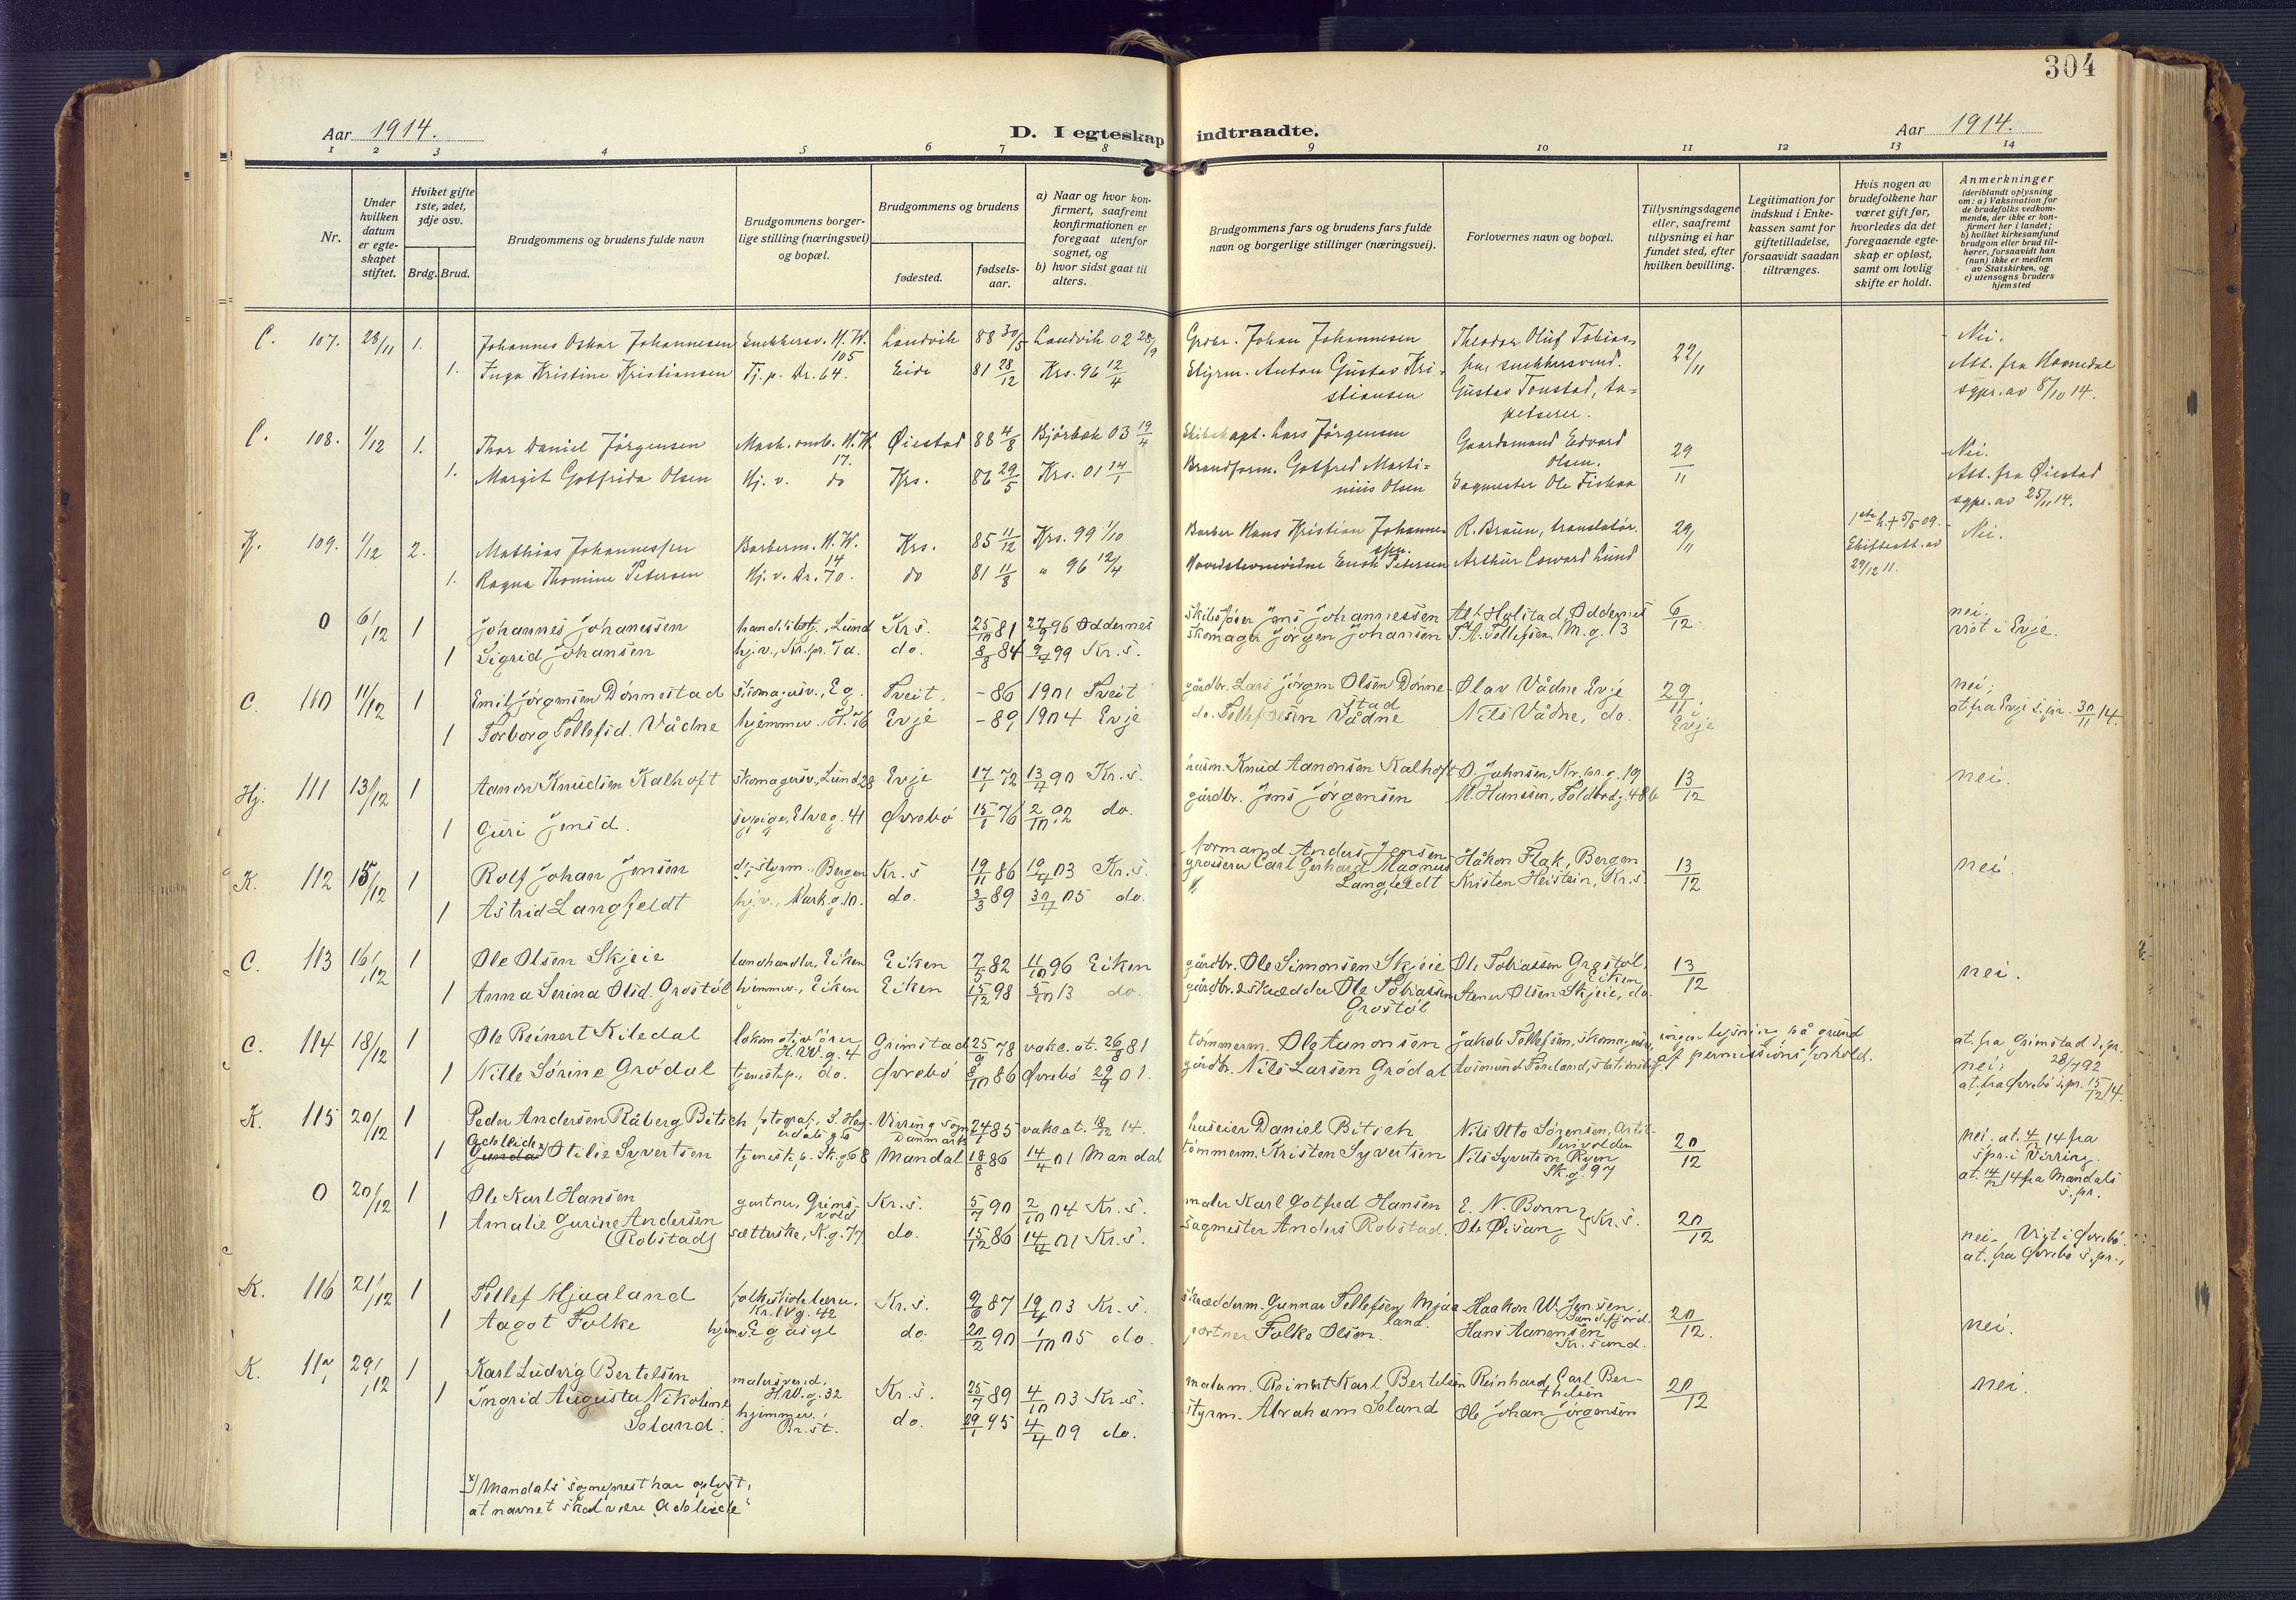 304
Aar 1914.
D. I egteskap indtraadte.
Aar 1914.
1 2 3 4 5 6 7 8 9 10 11 12 13 14
Nr.
Under hvilken datum er egteskapet stiftet.
Hviket gifte 1ste, 2det, 3dje osv.
Brdg. Brud.
Brudgommens og brudens fulde navn
Brudgommens borgerlige stilling (næringsvei) og bopæl.
Brudgommens og brudens
fødested.
fødselsaar.
a) Naar og hvor konfirmert, saafremt konfirmationen er foregaat utenfor sognet, og
b) hvor sidst gaat til alters.
Brudgommens fars og brudens fars fulde navn og borgerlige stillinger (næringsvei).
Forlovernes navn og bopæl.
Tillysningsdagene eller, saafremt tillysning ei har fundet sted, efter hvilken bevilling.
Legitimation for indskud i Enkekassen samt for giftetilladelse, forsaavidt saadan tiltrænges.
Hvis nogen av brudefolkene har været gift før, hvorledes da det foregaaende egteskap er opløst, samt om lovlig skifte er holdt.
Anmerkninger
(deriblandt oplysning om: a) Vaksination for de brudefolks vedkommende, der ikke er konfirmert her i landet; b) hvilket kirkesamfund brudgom eller brud tilhører, forsaavidt han (hun) ikke er medlem av Statskirken, og c) utensogns bruders hjemsted
C. 107. 28/11 1. Johannes Oskar Johannesen Snekkersv. H.W. 105 Landvik 88 30/5 Landvik 02 28/9 Johan Johannesen Theodor Oluf Tobias- 22/11 Nei.
1. Inga Kristine Kristiansen Tj. p. Dr. 64. Eide 81 28/12 Krs. 96 12/4 Styrm. Anton Gustav Kristiansen sen snekkersvend. Gustav Tonstad, tapetserer. Att. fra Homedal sgpr. av 8/10 14.
C. 108. 1/12 1. Thor Daniel Jörgensen H.W. 17. Øiestad 88 4/8 03 19/4 Skibskapt. Lars Jörgensen Gaardsmand Edvard Olsen. 29/11 Nei.
1. Margit Gotfrida Olsen Hj. v. do Krs. 86 29/5 Krs. 01 14/1 Brandform. Gotfred Martinius Olsen Sagmester Ole Fiskaa Att. fra Øiestad sgpr. av 25/11 14.
K. 109. 1/12 2. Mathias Johannessen Barberm. H.W. 14 Krs. 85 11/12 Krs. 99 1/10 Barber Hans Kristian Johannessen. R. Braun, translatör. 29/11 1ste h. + 5/5 09. Skifteatt. av 29/12 11. Nei.
1. Ragna Thomine Petersen Hj. v. Dr. 70. do 81 11/8 " 96 12/4 Enok Petersen Arthur Coward Lund
0 6/12 1 Johannes Johanessen Lund Kr.s. 25/10 81 27/9 96 Oddernes skibsfører Jens Johannessen Alf Holstad, Oddernes 6/12 nei.
1 Sigrid Johansen hj.v., Kr.pr. 7a. do. 8/8 84 9/4 99 Kr.s. skomager Jörgen Johansen T. A. Tellefsen, M.g. 13 viet i Evje.
C. 110 11/12 1 Emil Jörgensen Dönnestad skomagersv., Eg. Tveit. - 86 1901 Tveit gårdbr. Lars Jörgen Olsen Dönnestad Olav Vådne Evje 29/11. Evje nei;
1 Torborg Tellefsd. Vådne hjemmev. Evje - 89 1904 Evje do. Tellef Olsen Vådne Nils Vådne, do. at. fra Evje s.pr. 30/11 14.
Hj. 111 13/12 1 Aanon Knudsen Kalhoft skomagersv., Lund 28 Evje 17/1 72 13/4 90 Kr.s. husm. Knud Aanonsen Kalhoft O. Johnsen, Kr.pr.g. 19 13/12 nei.
1 Guri Jensd. sypige, Elveg. 41 Øvrebö 15/1 76 2/10 92 do. gårdbr. Jens Jörgensen M. Hanssen, Toldbodg. 48b
K. 112 15/12 1 Rolf Johan Jensen styrm., Bergen Kr.s 19/11 86 19/4 03 Kr.s. formand Anders Jensen Håkon Flak, Bergen 13/12 nei.
1 Astrid Langfeldt hj.v., Mark.g. 10. do. 3/3 89 30/4 05 do. grosserer Carl Gerhard Magnus Langfeldt Kristen Heistein, Kr.s.
C. 113 16/12 1 Ole Olsen Skjeie landhandler, Eiken Eiken 7/5 82 11/10 96 Eiken gårdbr. Ole Simonsen Skjeie Ole Tobiassen Grostöl, Eiken 13/12 nei.
1 Anna Serina Olsd. Grostöl hjemmev., Eiken Eiken 15/12 98 5/10 13 do. gårdbr. & skrædder Ole Tobiassen Grostöl Stener Olsen Skjeie, do.
C. 114 18/12 1 Ole Reinert Kiledal lokomotivfører H.W.g. 4 Grimstad 25/9 78 vakc. at. 26/8 81 tömmerm. Ole Aanonsen Jakob Tellefsen, skomagersv. ingen lysning på grund af permissionsforhold. at. fra Grimstad s.pr. 28/7 92
1 Nille Sörine Grödal tjenestep., do. Øvrebö 8/10 86 Øvrebö 29/9 01. gårdbr. Nils Larsen Grödal Aasmund Föreland, nei; at. fra Øvrebö s.pr. 15/12 14.
K. 115 20/12 1 Peder Andersen Råberg Bitsch fotograf, Virring sogn Danmark 24/1 85 vakc at. 18/12 14. huseier Daniel Bitsch Nils Otto Sörensen, 20/12 nei. at. 4/12 14 fra s.pr. i Virring.
1 Adeleide Gunda x) Otilie Syvertsen tjenestep. Sk.g. 68 Mandal 18/8 86 14/4 01 Mandal tömmerm. Kristen Syvertsen Nils Syvertsen Ryen Sk.g. 97 at. 14/12 14 fra Mandals s.pr.
0 20/12 1 Ole Karl Hansen gartner, Grimsvold Kr.s. 5/7 90 2/10 04 Kr.s. maler Karl Gotfred Hansen E. N. Bonn 20/12
1 Amalie Gurine Andersen (Robstad) sætterske, K.g. 77 do. 15/12 86 14/4 01 Kr.s. sagmester Anders Robstad. Ole Øisang } Kr.s. nei. Viet i Øvrebö. at. fra Øvrebö s.pr.,
K. 116 21/12 1 Tellef Mjaaland folkeskolelærer, Kr.IVg. 42 Kr.s. 9/6 87 19/4 03 Kr.s. skrædderm. Gunnar Tellefsen Mjaaland. Haakon W. Jensen Sandefjord. 20/12. nei.
1 Aagot Folke hjemv. Eg asyl do. 20/2 90 1/10 05 do. portner Folke Olsen. Hans Aanensen Kr.sand.
K. 117 29/12 1 Karl Ludvig Bertelsen malersvend, H.W.g. 32 Kr.s. 25/7 89 4/10 03 Kr.s. malerm. Reinert Karl Bertelsen Reinhard Carl Berthelsen 20/12 nei.
1 Ingrid Augusta Nikoline Soland. hjemmev., Br.st. do. 29/1 95 4/4 09 do. styrm. Abraham Soland Ole Johan Jörgensen
x) Mandals sogneprest har oplyst,
at navnet skal være „Adeleide"